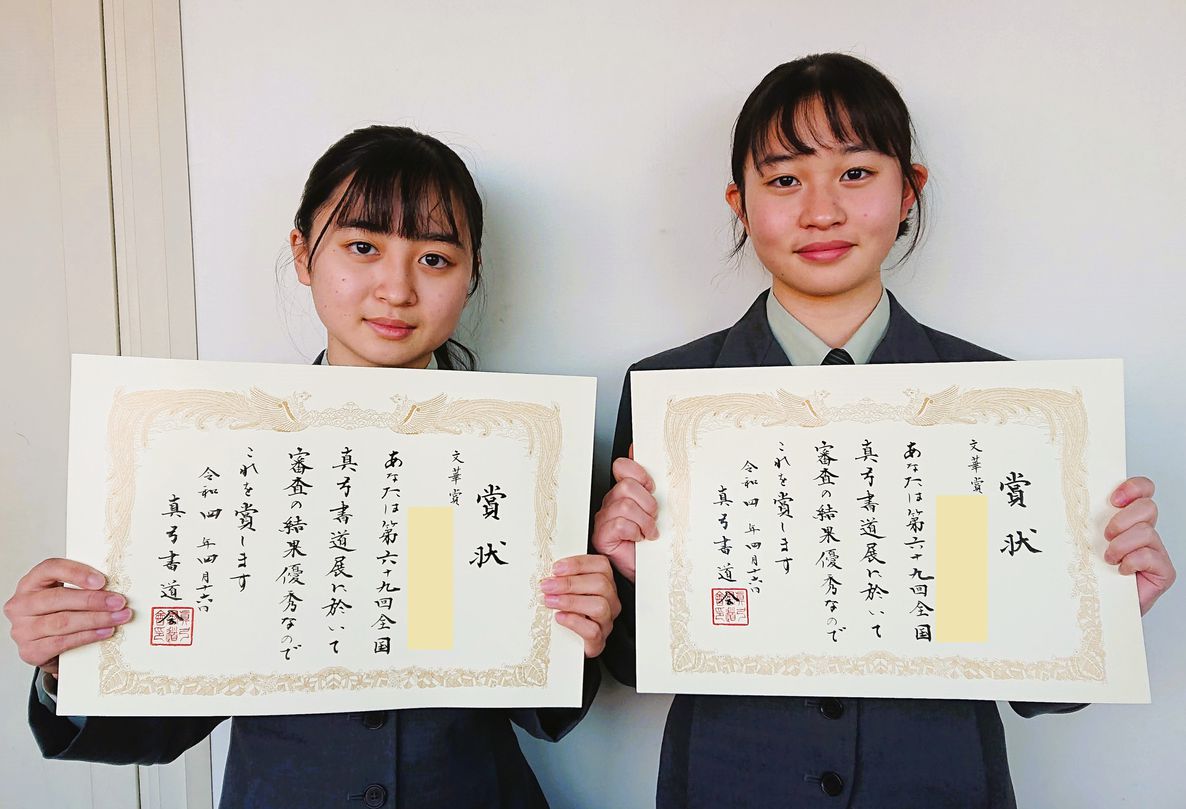 賞状
文華賞
あなたは第六十九回全国
真弓書道展に於いて
審査の結果優秀なので
これを賞します
令和四年四月十六日
真弓書道会
賞状
文華賞
あなたは第六十九回全国
真弓書道展に於いて
審査の結果優秀なので
これを賞します
令和四年四月十六日
真弓書道会